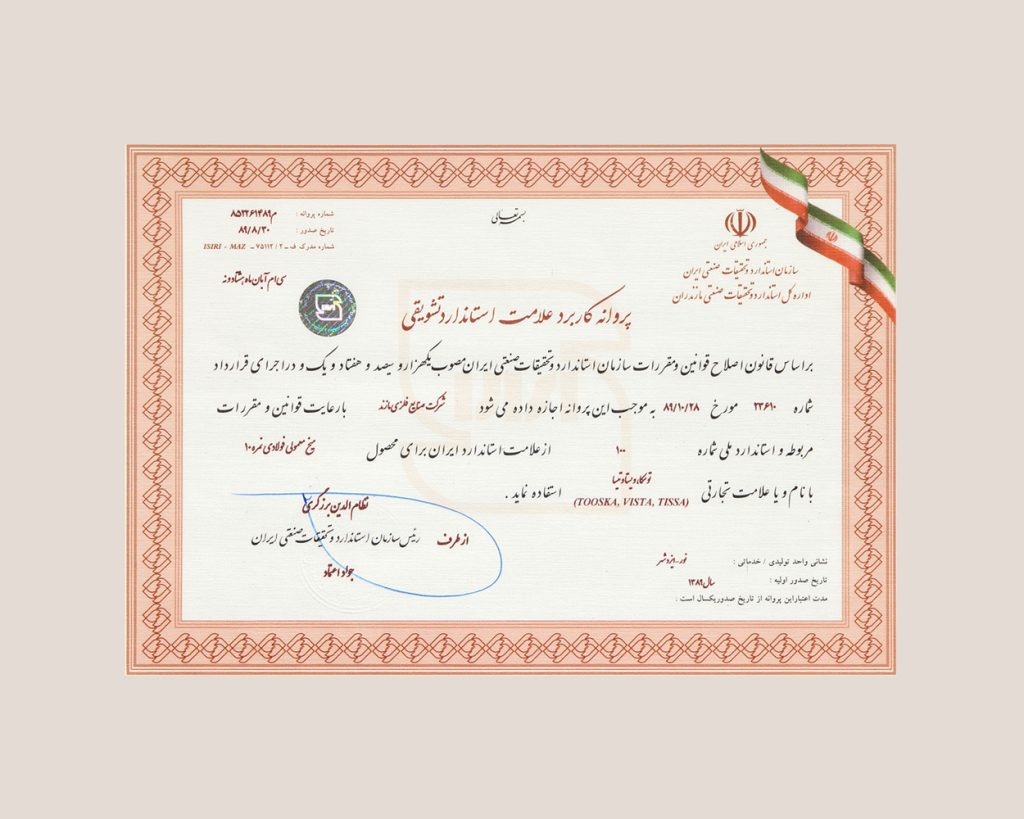 بسمه تعالی
جمهوری اسلامی ایران
سازمان استاندارد و تحقیقات صنعتی ایران
اداره کل استاندارد و تحقیقات صنعتی مازندران
شماره پروانه :
تاریخ صدور : ۸۹/۸/۳۰
شماره مدرک ف ـ ۲ / ۷۵۱۱۲ ـ ISIRI - MAZ
سی ام آبان ماه هشتاد و نه
پروانه کاربرد علامت استاندارد تشویقی
بر اساس قانون اصلاح قوانین و مقررات سازمان استاندارد و تحقیقات صنعتی ایران مصوب یکهزار و سیصد و هفتاد و یک و در اجرای قرارداد
شماره ۲۳۶۱۰ مورخ ۸۹/۱۰/۲۸ به موجب این پروانه اجازه داده می شود شرکت صنایع فلزی مازند با رعایت قوانین و مقررات
مربوطه و استاندارد ملی شماره ۱۰۰ از علامت استاندارد ایران برای محصول میخ معمولی فولادی نمره ۱۰
با نام و یا علامت تجارتی توسکا، ویستا، تیسا
(TOOSKA, VISTA, TISSA) استفاده نماید .
نظام الدین برزگری
از طرف رئیس سازمان استاندارد و تحقیقات صنعتی ایران
جواد اعتماد
نشانی واحد تولیدی / خدماتی : نور-ایزدشهر
تاریخ صدور اولیه : سال ۱۳۸۹
مدت اعتبار این پروانه از تاریخ صدور یکسال است .